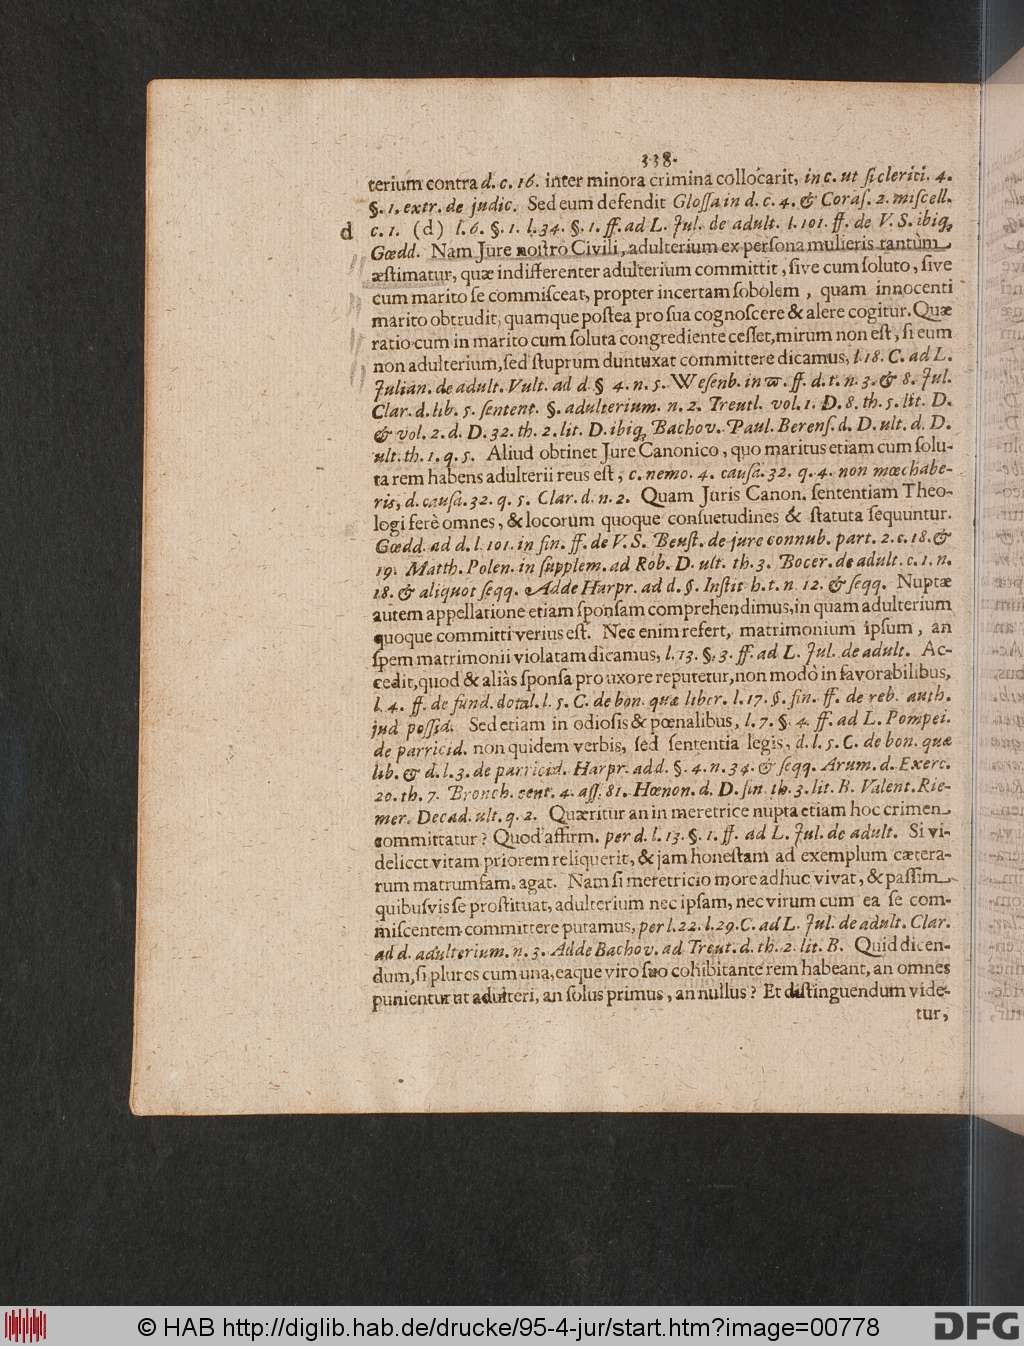 338.
terium contra d. c. 16. inter minora crimina collocarit, in c. ut si clerici. 4.
§. 1. extr. de judic. Sed eum defendit Glossa in d. c. 4. & Coras. 2. miscell.
d c. 1. (d) l. 6. §. 1. l. 34. §. 1. ff. ad L. Jul. de adult. l. 101. ff. de V. S. ibiq;
Gœdd. Nam Jure nostro Civili, adulterium ex persona mulieris tantùm
æstimatur, quæ indifferenter adulterium committit, sive cum soluto, sive
cum marito se commisceat, propter incertam sobolem, quam innocenti
marito obtrudit, quamque postea pro sua cognoscere & alere cogitur. Quæ
ratio cum in marito cum soluta congrediente cesset, mirum non est, si eum
non adulterium, sed stuprum duntuxat committere dicamus, l. 18. C. ad L.
Julian. de adult. Vult. ad d. § 4. n. 5. Wesenb. in ϖ. ff. d. t. n. 3. & 8. Jul.
Clar. d. lib. 5. sentent. §. adulterium. n. 2. Treutl. vol. 1. D. 8. th. 5. lit. D.
& vol. 2. d. D. 32. th. 2. lit. D. ibiq; Bachov. Paul. Berens. d. D. ult. d. D.
ult. th. 1. q. 5. Aliud obtinet Jure Canonico, quo maritus etiam cum solu-
ta rem habens adulterii reus est, c. nemo. 4. causa. 32. q. 4. non mœchabe-
ris, d. causa. 32. q. 5. Clar. d. n. 2. Quam Juris Canon. sententiam Theo-
logi ferè omnes, & locorum quoque consuetudines & statuta sequuntur.
Gœdd. ad d. l. 101. in fin. ff. de V. S. Beust. de jure connub. part. 2. c. 18. &
19. Matth. Polen. in supplem. ad Rob. D. ult. th. 3. Bocer. de adult. c. 1. n.
18. & aliquot seqq. Adde Harpr. ad d. §. Instit h. t. n. 12. & seqq. Nuptæ
autem appellatione etiam sponsam comprehendimus, in quam adulterium
quoque committi verius est. Nec enim refert, matrimonium ipsum, an
spem matrimonii violatam dicamus, l. 13. §. 3. ff. ad L. Jul. de adult. Ac-
cedit, quod & aliàs sponsa pro uxore reputetur, non modò in favorabilibus,
l. 4. ff. de fund. dotal. l. 5. C. de bon. quæ liber. l. 17. §. fin. ff. de reb. auth.
jud possid. Sed etiam in odiosis & pœnalibus, l. 7. §. 4. ff. ad L. Pompei.
de parricid. non quidem verbis, sed sententia legis, d. l. 5. C. de bon. quæ
lib. & d. l. 3. de parricid. Harpr. add. §. 4. n. 34. & seqq. Arum. d. Exerc.
20. th. 7. Bronch. cent. 4. ass. 81. Hœnon. d. D. fin. th. 3. lit. B. Valent. Rie-
mer. Decad. ult. q. 2. Quæritur an in meretrice nupta etiam hoc crimen
committatur? Quod affirm. per d. l. 13. §. 1. ff. ad L. Jul. de adult. Si vi-
delicet vitam priorem reliquerit, & jam honestam ad exemplum cætera-
rum matrumfam. agat. Nam si meretricio more adhuc vivat, & passim
quibusvis se prostituat, adulterium nec ipsam, nec virum cum ea se com-
miscentem committere putamus, per l. 22. l. 29. C. ad L. Jul. de adult. Clar.
ad d. adulterium. n. 3. Adde Bachov. ad Treut. d. th. 2. lit. B. Quid dicen-
dum, si plures cum una, eaque viro suo cohibitante rem habeant, an omnes
punientur ut adulteri, an solus primus, an nullus? Et distinguendum vide-
tur,
© HAB http://diglib.hab.de/drucke/95-4-jur/start.htm?image=00778
DFG